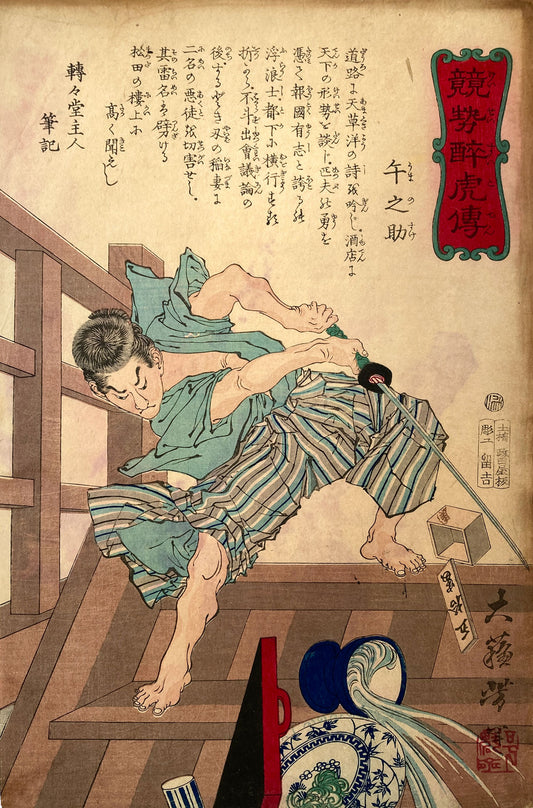 競勢醉虎傳
午之助
道路に天草洋の詩を吟じ酒店に
天下の形勢を談じ匹夫の勇を
憑て報國有志と誇る的
浮浪士都下に横行する
折から不斗出會議論の
後するどき刄の稲妻に
二名の悪徒を切害せし
其雷名も劈ける
松田の樓上に
高く聞えし
轉々堂主人
筆記
政田屋板
彫工
大蘓芳